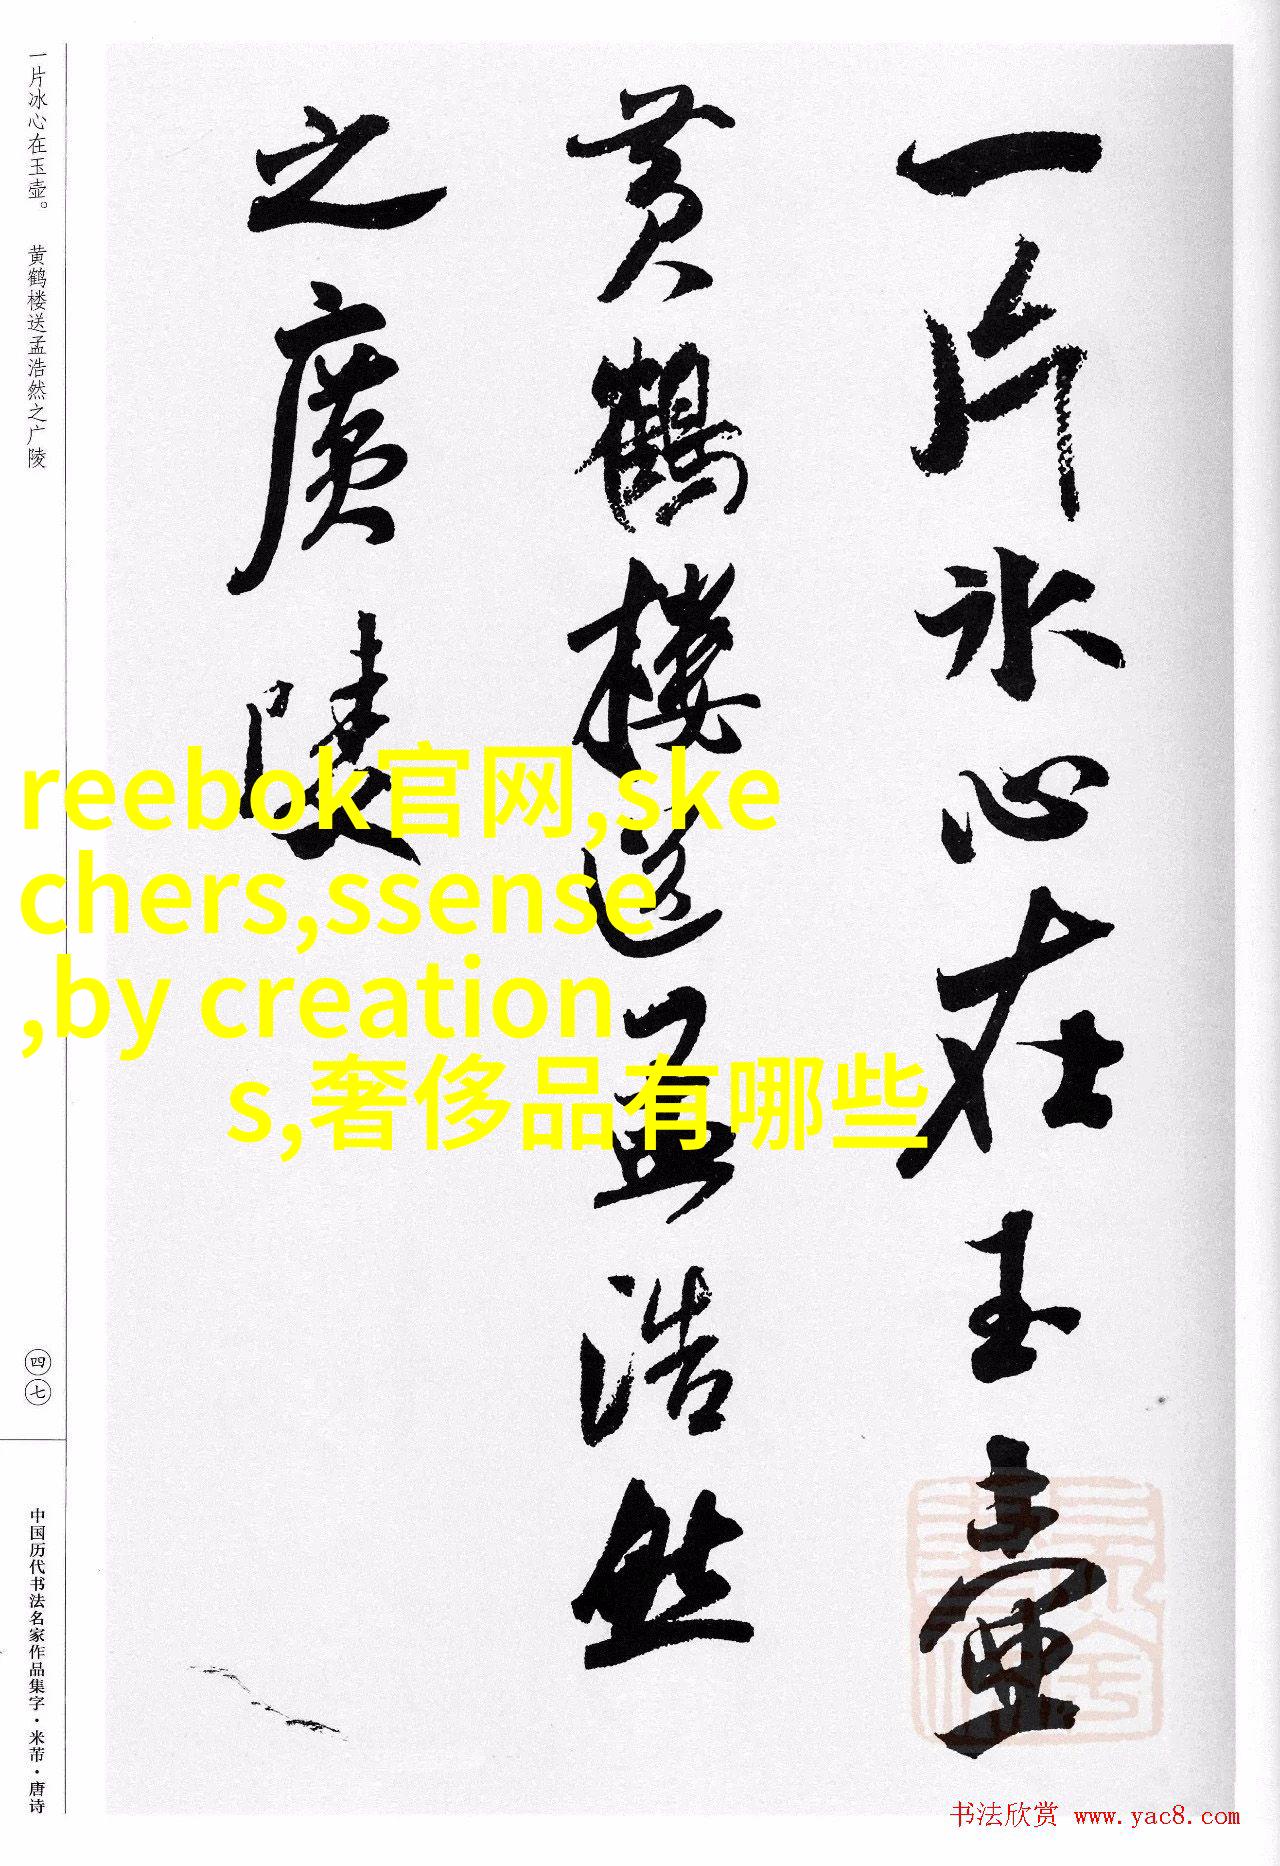 一片冰心在玉壶
黄鹤楼送孟浩然
之廣陵
一片冰心在玉壶。　黄鹤楼送孟浩然之广陵
四七
中国历代书法名家作品集字·米芾·唐诗
reebok官网,ske
chers,ssense
,by creation
s,奢侈品有哪些
书法欣赏 www.yac8.com